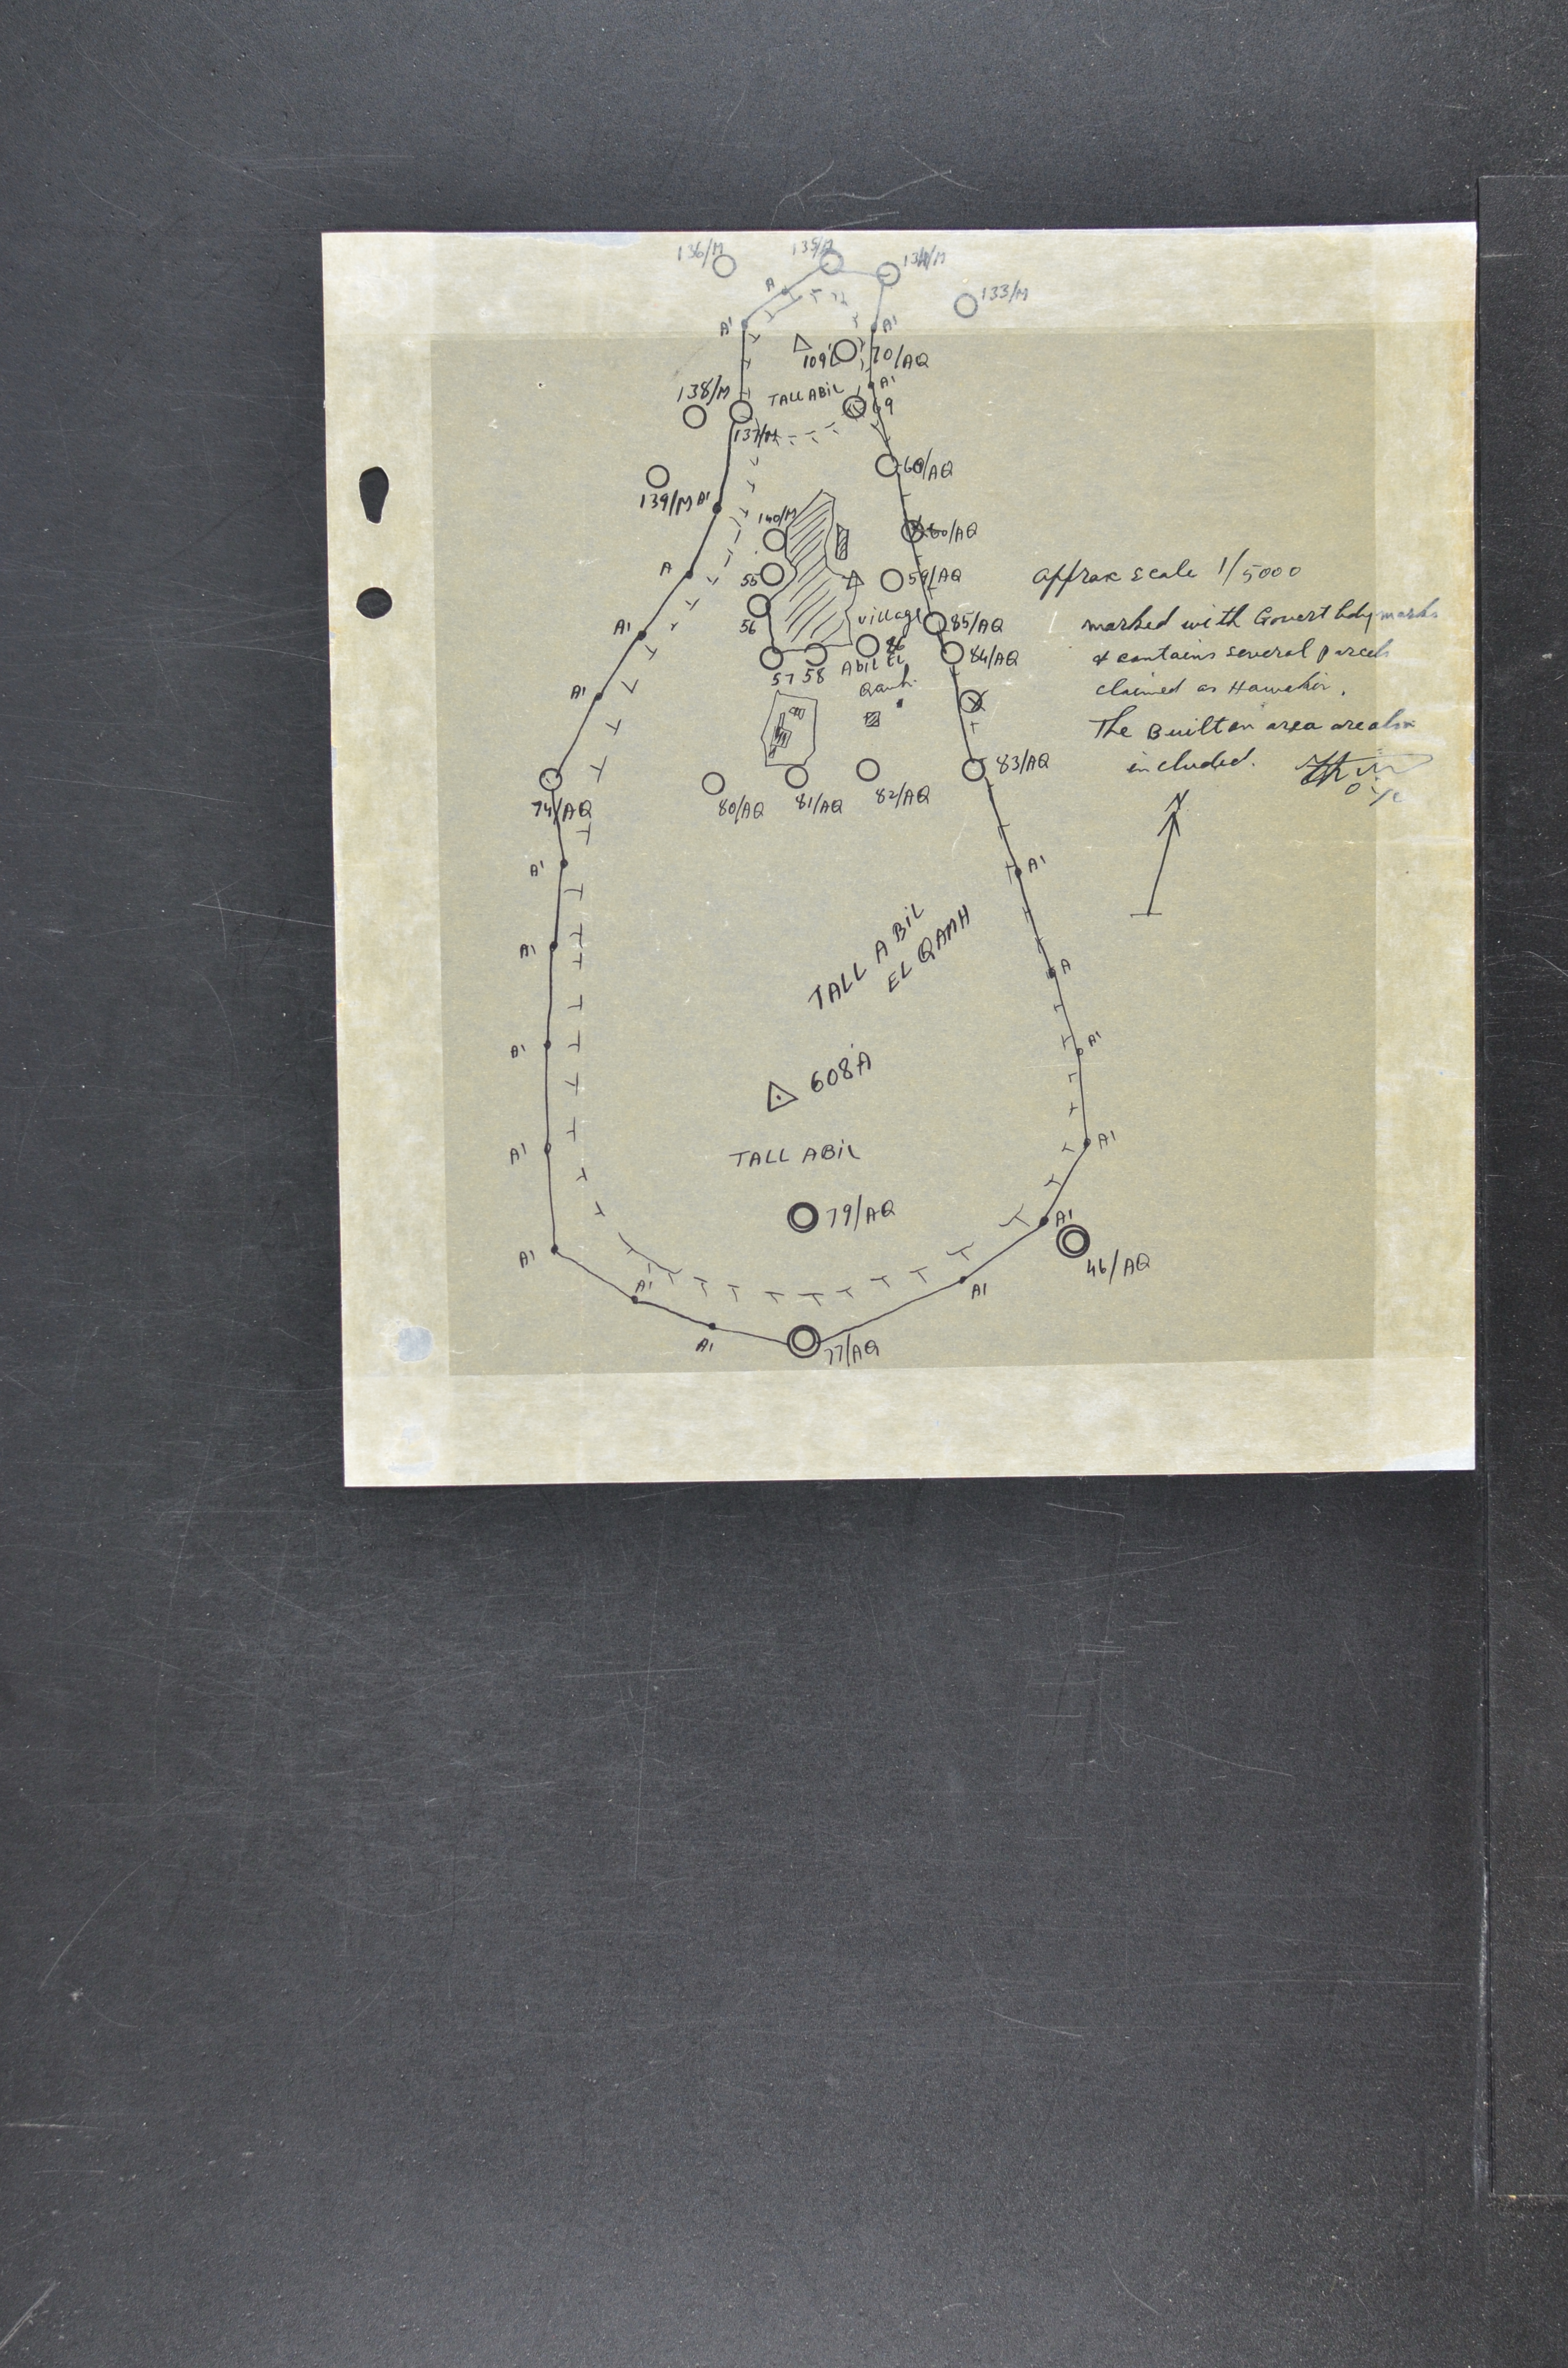 136/M
135/M
134/M
133/M
A
A'
A'
109'
70/AQ
A'
138/M
TALL ABIL
69
137/M
60/AQ
139/M A'
140/M
60/AQ
A
55
59/AQ
approx scale 1/5000
A'
56
village
85/AQ
marked with Govert bdy marks
57 58
Abil El
86
84/AQ
& contains several parcels
A'
Qamh
claimed as Hawakir.
The Built on area are also
included.
83/AQ
74/AQ
80/AQ
81/AQ
82/AQ
N
A'
A'
TALL ABIL
EL QAMH
A'
A
A'
A'
608A
A'
TALL ABIL
A'
79/AQ
A'
46/AQ
A'
A'
A'
A'
77/AQ